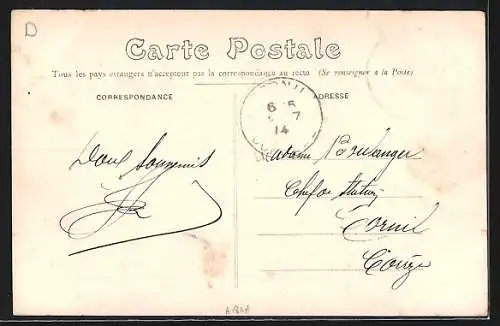 D
Carte Postale
Tous les pays étrangers n'acceptent pas la correspondance au recto (Se renseigner à la Poste)
CORRESPONDANCE
ADRESSE
6 5
7
14
Doux Souvenirs
Madame Boulanger
Chef de Station
Cornil
Corrèze